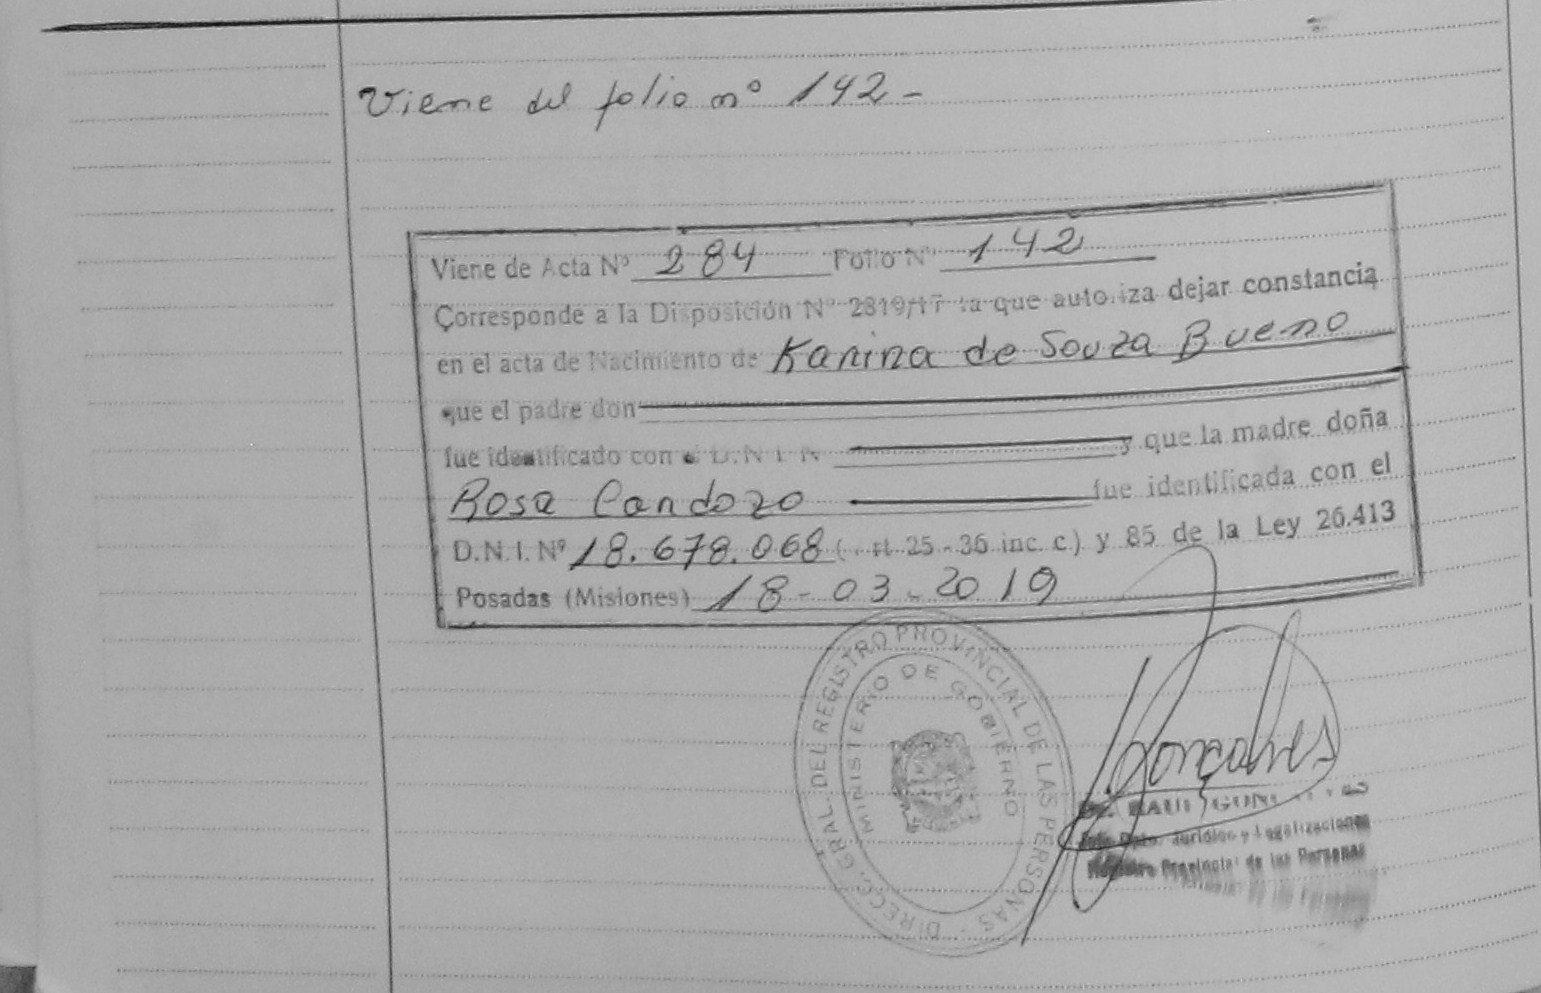 Viene del folio nº 142 -
Viene de Acta Nº 284 Folio Nº 142
Corresponde a la Disposición Nº 2819/17 la que autoriza dejar constancia
en el acta de Nacimiento de Karina de Souza Bueno
que el padre don
fue identificado con D.N.I. Nº y que la madre doña
Rosa Cardozo fue identificada con el
D.N.I. Nº 18.678.068 ( art 25 - 36 inc. c) y 85 de la Ley 26.413
Posadas (Misiones) 18 - 03 - 2019
DIRECC. GRAL. DEL REGISTRO PROVINCIAL DE LAS PERSONAS -
MINISTERIO DE GOBIERNO
Gonçalves
Dr. RAUL
Jefe Dpto. Jurídico y Legalizaciones
Registro Provincial de las Personas